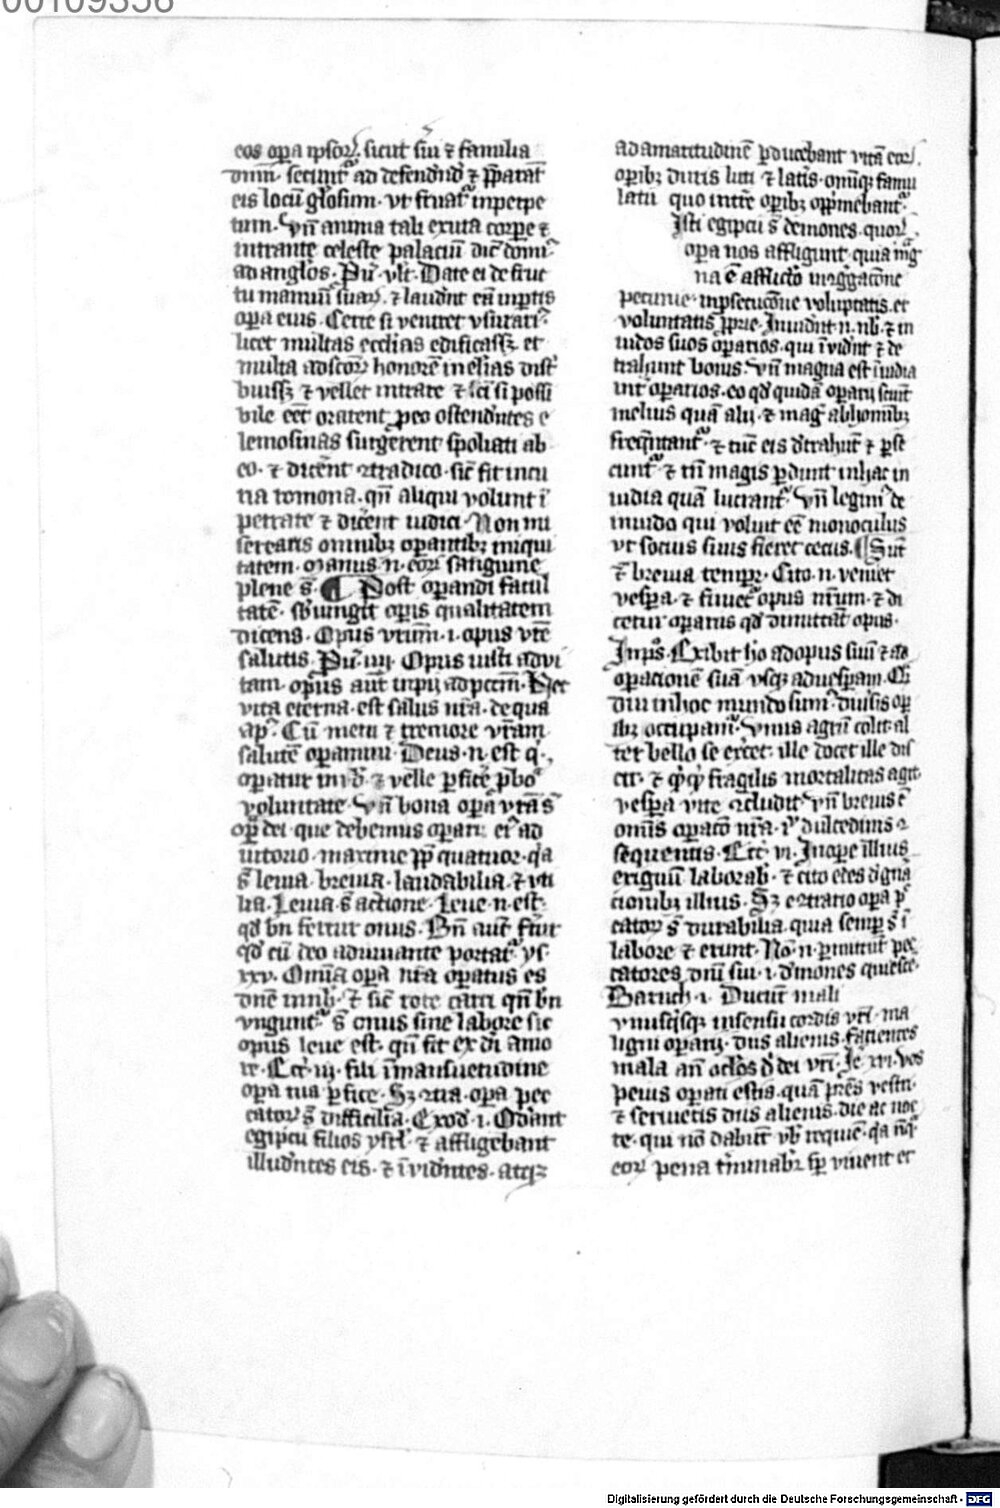 00109338
eos opa ipsoꝝ. sicut sui ⁊ familia
dnm̄ secunt᷑ ad defendnd ⁊ p̄parat
eis locū gl̓osum. vt fruat᷑ inperpe
tuum. Vn̄ anima tali exuta corpe ⁊
intrante celeste palaciū dic̄ domi᷑
ad angl̓os. Pu᷑. vlt. Date ei de fruc
tu manuū suaꝝ. ⁊ laudn̓t eā inportis
opa eius. Certe si veniret vsurari᷑
licet multas ecclīas edificassꝫ et
multa
buissꝫ ⁊ vellet intrare ⁊ si possi
bile eēt orarent p eo ostendn̓tes e
lemosinas surgerent spoliati ab
eo. ⁊ dicent ꝯtradico. sic̄ fit in cu
ria romana. qn̄ aliqui volunt ī
petrare ⁊ dicent iudici. Non mi
sereatis omnibꝫ operantibꝫ iniqui
tatem. Manus .n. eoꝝ sanguine
plene s̄. ¶ Post operandi facul
tatē. sbiungit opis qualitatem
dicens. Opus vrm̄ .i. opus vre
salutis. Pu᷑. Opus iusti ad vi
tam. opus aut inpij ad pctm̄. Hec
vita eterna. est salus nr̄a. de qua
ap᷑. Cū metu ⁊ tremore vr̄am
salutē operamini. Deus .n. est q᷑
operatur in vob̓. ⁊ velle ⁊ pficere p bo᷑
voluntate. Vn̄ bona opa vr̄a s̄
op̄ dei. que debemus operari ei᷑ ad
iutorio. maxime pp̄ quatuor. q̓a
s̄ leuia. breuia. laudabilia. ⁊ vti
lia. Leuia s̄ actione. Leue .n. est
qd̓ bn̄ fertur onus. Bn̄ aut fert᷑
qd̓ cū deo adiuuante portat᷑. ys.
xxv. Omīa opa nr̄a operatus es
dn̄e in nob̓. ⁊ sic̄ rote carri qn̄ bn̄
vngunt᷑ s̄ onus sine labore sic
opus leue est. qn̄ fit ex di amo
re. Ecc᷑. iij. fili in mansuetudine
opa tua pfice. Sꝫ ꝯtra. opa pec
catoꝝ s̄ difficilia. Exod. i. Oderant
egipcij filios ysrl̓. ⁊ affligebant
illudn̓tes eis. ⁊ inuidn̓tes. atqꝫ
ad amaritudinē pducebant vitā eoꝝ.
opibꝫ duris luti ⁊ lat̓is. omīqꝫ famu
latu quo in tr̄e opibꝫ opp̄mebant᷑.
Isti egipcij s̄ demones. quoꝝ
opa nos affligunt. quia mag̓
na ē afflictō in ꝯgregacōne
pecunie. in psecucōne voluptatis. et
voluntatis pprie. Inuidn̓t .n. nob̓. ⁊ in
inuidos suos operarios. qui inuidn̓t ⁊ de
trahunt bonis. Vn̄ magna est inuidia
int̓ operarios. eo qd̓ quidā operarij sciūt
melius quā alij. ⁊ mag᷑ ab hominibꝫ
freq̄ntant᷑. ⁊ tūc eis detrahūt ⁊ pse
cunt᷑. ⁊ tn̄ magis pdunt in hac in
uidia quā lucrant᷑. Vn̄ legim᷑ de
inuido qui voluit eē monoculus
vt socius suus fieret cecus. ¶ Sūt
⁊ breuia tempe. Cito .n. veniet
vespa. ⁊ finiet᷑ opus nr̄um. ⁊ di
cetur operarijs qd̓ dimittāt opus.
In ps᷑. Exibit hō ad opus suū ⁊ ad
operacionē suā vsqꝫ ad vesperam.
Diu in hoc mundo sum᷑. diu̓sis op
ibꝫ occupam᷑. Vnus agrū colit. al
ter bello se exercet. ille docet ille dis
cit. ⁊ q̓cq̓d fragilis mortalitas agit.
vespa vite ꝯcludit. Vn̄ breuis ē
omīs operacō nr̄a. dulcedinis ꝯ
sequentis. Ecc᷑. vi. In ope illius
exiguū laborab̓. ⁊ cito edes de gn̓a
cionibꝫ illius. Sꝫ e ꝯtrario opa pec
catoꝝ s̄ durabilia. quia semp s̄ ī
labore ⁊ erunt. Nō .n. pmittūt pec
catores dn̄i sui .i. demones quiesce᷑.
Baruch .i. Ducūt mali
vnusq̓sqꝫ in sensu cordis vri̓. ma
ligni operarij. dijs alienis. facientes
mala an̄ ocl̓os d. dei vri̓. Ie. xvi. vos
peius operati estis. quā pr̄es vestri.
⁊ seruietis dijs alienis. die ac noc
te. qui nō dabūt vob̓ requiē. q̓a nūq̓
eoꝝ pena t̓minabr᷑. sꝫ viuent et
Digitalisierung gefördert durch die Deutsche Forschungsgemeinschaft - DFG